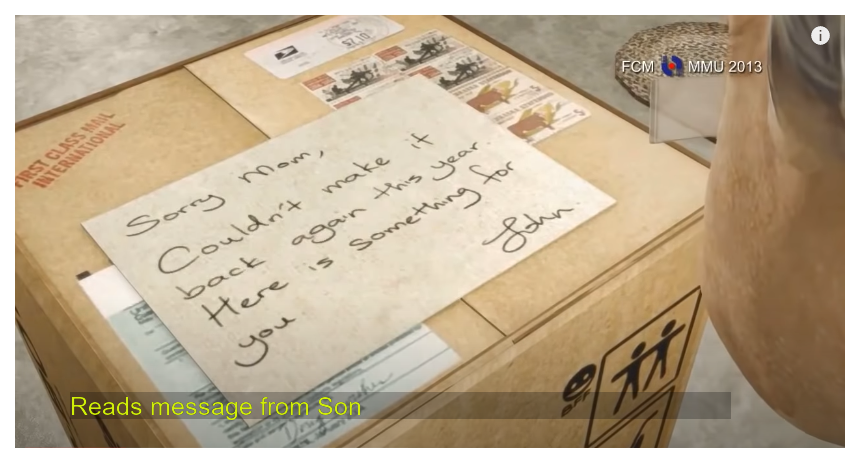 FCM MMU 2013
$7.10
FIRST CLASS MAIL
INTERNATIONAL
Sorry Mom,
Couldn't make it
back again this year.
Here is something for
you
John
BFF
Reads message from Son